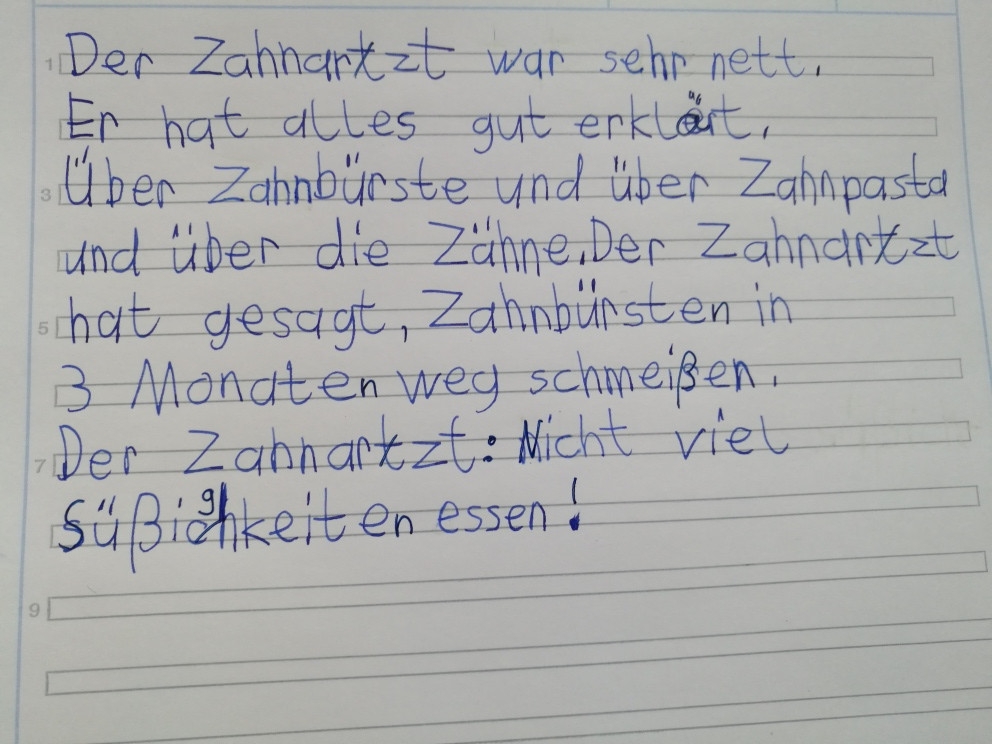 Der Zahnartzt war sehr nett.
Er hat alles gut erklärt.
Über Zahnbürste und über Zahnpasta
und über die Zähne. Der Zahnartzt
hat gesagt, Zahnbürsten in
3 Monaten weg schmeißen.
Der Zahnartzt: Nicht viel
Süßigkeiten essen!